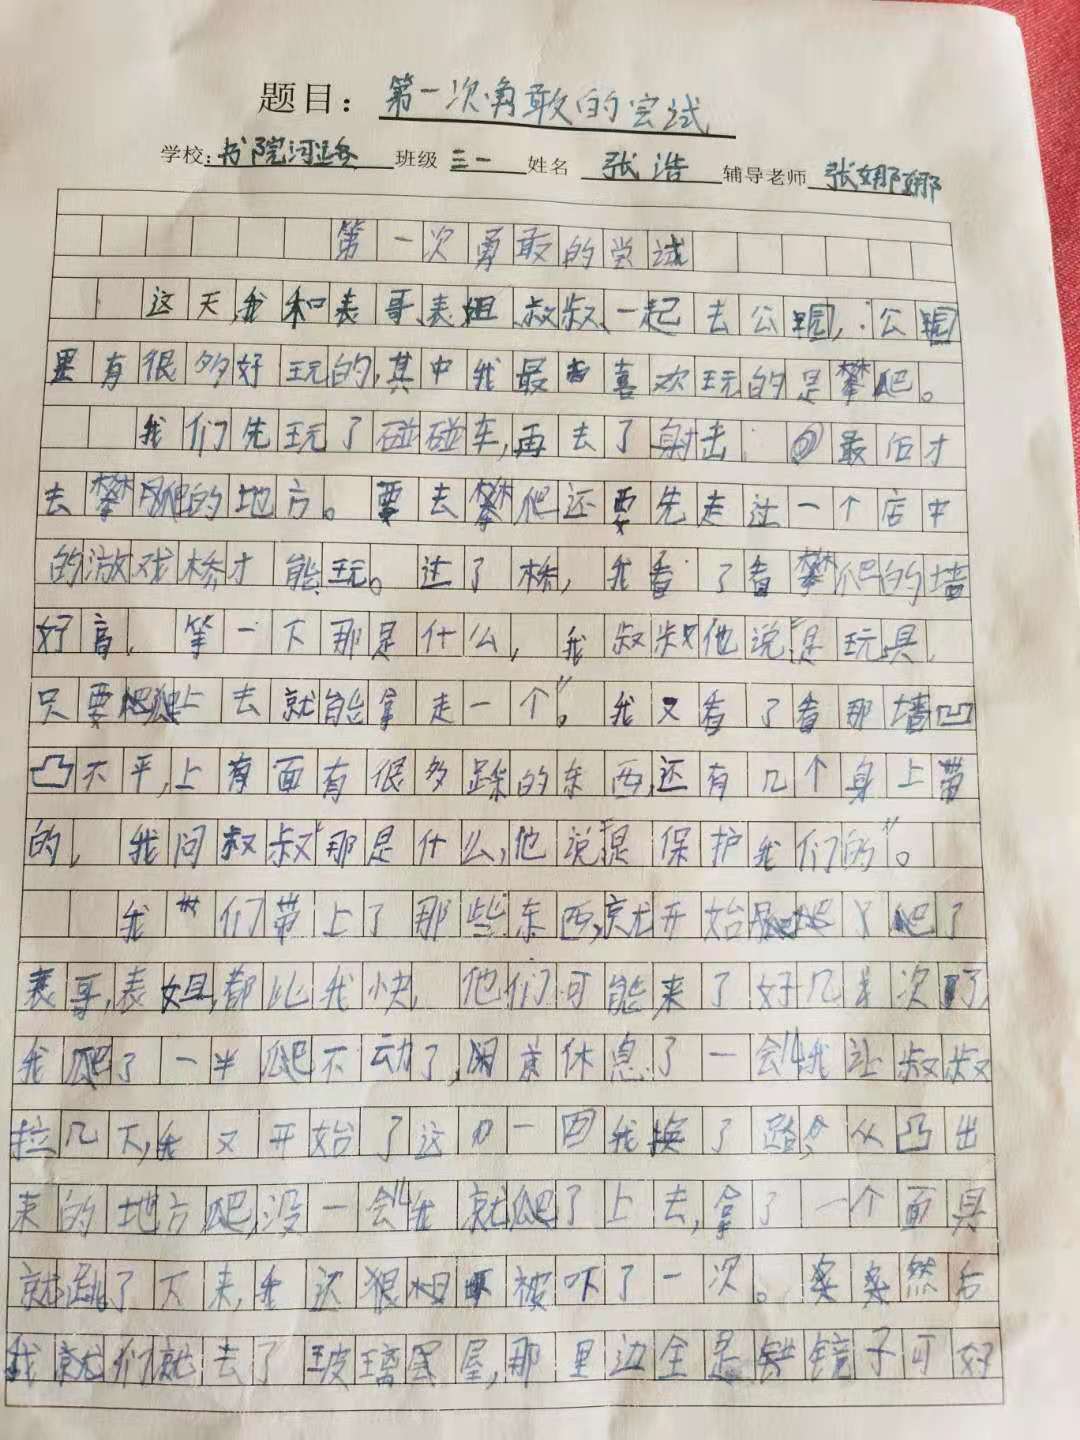 题目：第一次勇敢的尝试
学校：书院河路 班级 三一 姓名 张浩 辅导老师 张娜娜
第一次勇敢的尝试
这天,我和表哥、表姐、叔叔、一起去公园,公园
里有很多好玩的,其中我最喜欢玩的是攀爬。
我们先玩了碰碰车,再去了射击 最后才
去攀爬的地方。要去攀爬还要先走过一个店中
的游戏桥才能玩。过了桥,我看了看攀爬的墙
好高, 等一下那是什么,我叔叔他说“是玩具,
只要爬上去就能拿走一个”。我又看了看那墙凹
凸不平,上有面有很多踩的东西,还有几个身上带
的,我问叔叔“那是什么,他说“是保护我们的”。
我们带上了那些东西,就开始爬了爬了
表哥,表姐,都比我快,他们可能来了好几次了,
我爬了一半爬不动了,休息了一会儿我让叔叔
拉几下,我又开始了这一回我换了路,从凸出
来的地方爬,没一会儿我就爬了上去,拿了一个面具
就跳了下来,我还被吓了一次。突然后
我们就去了玻璃屋,那里边全是镜子可好